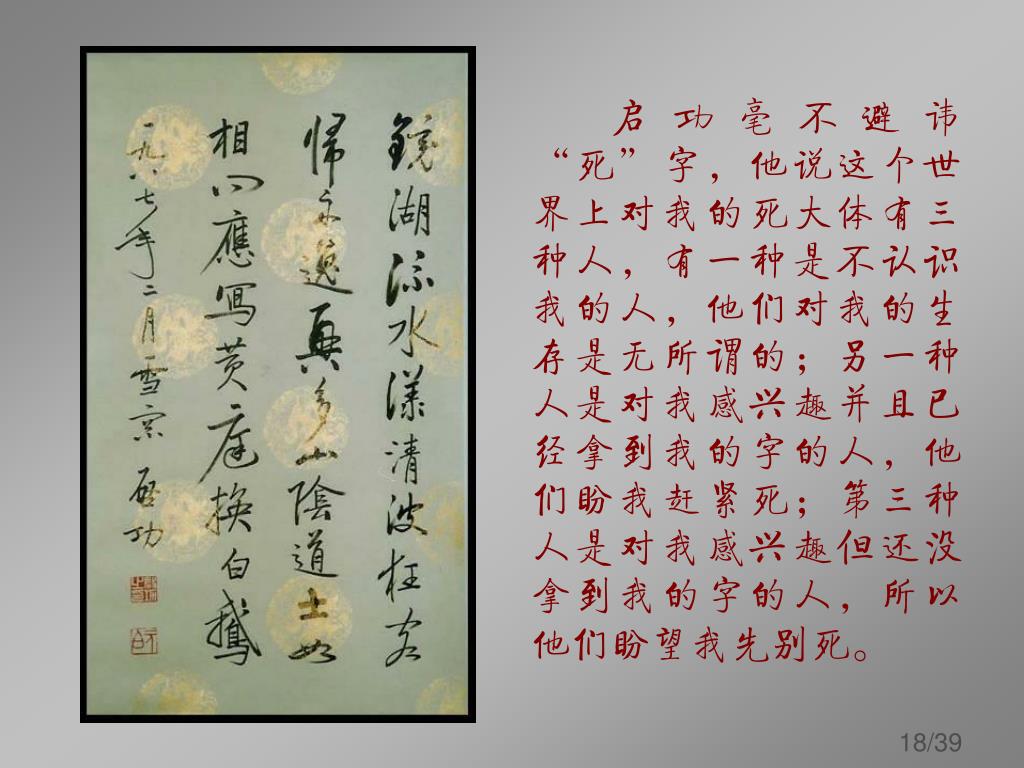 鏡湖流水漾清波狂客
歸舟逸興多山陰道士如
相見應寫黄庭換白鵝
一九八七年二月雪窗 啓功
启功毫不避讳
“死”字，他说这个世
界上对我的死大体有三
种人，有一种是不认识
我的人，他们对我的生
存是无所谓的；另一种
人是对我感兴趣并且已
经拿到我的字的人，他
们盼我赶紧死；第三种
人是对我感兴趣但还没
拿到我的字的人，所以
他们盼望我先别死。
18/39